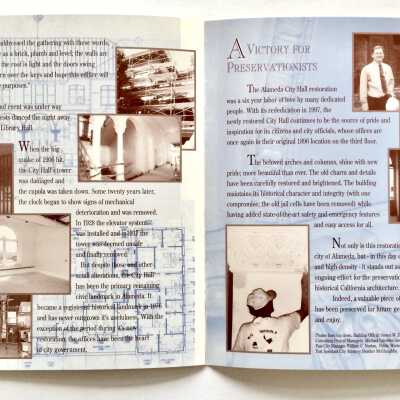 addressed the gathering with these words,
as a brick, plumb and level; the walls are
the roof is light and the doors swing
turn over the keys and hope this edifice will
purposes."
and event was under way
guests danced the night away
Library Hall.
When the big
quake of 1906 hit,
the City Hall's tower
was damaged and
the cupola was taken down. Some twenty years later,
the clock began to show signs of mechanical
deterioration and was removed.
In 1928 the elevator system
was installed and in 1937 the
tower was deemed unsafe
and finally removed.
But despite those and other
small alterations, the City Hall
has been the primary remaining
civic landmark in Alameda. It
became a registered historical landmark in 1976
and has never outgrown its usefulness. With the
exception of the period during its new
restoration, the offices have been the heart
of city government.
A VICTORY FOR
PRESERVATIONISTS
The Alameda City Hall restoration
was a six year labor of love by many dedicated
people. With its rededication in 1997, the
newly restored City Hall continues to be the source of pride and
inspiration for its citizens and city officials, whose offices are
once again in their original 1896 location on the third floor.
The beloved arches and columns, shine with new
pride; more beautiful than ever. The old charm and details
have been carefully restored and brightened. The building
maintains its historical character and integrity (with one
compromise; the old jail cells have been removed) while
having added state-of-the-art safety and emergency features
and easy access for all.
Not only is this restoration
city of Alameda, but - in this day of
and high density - it stands out as
ongoing effort for the preservation
historical California architecture.
Indeed, a valuable piece of
has been preserved for future ge
and enjoy.